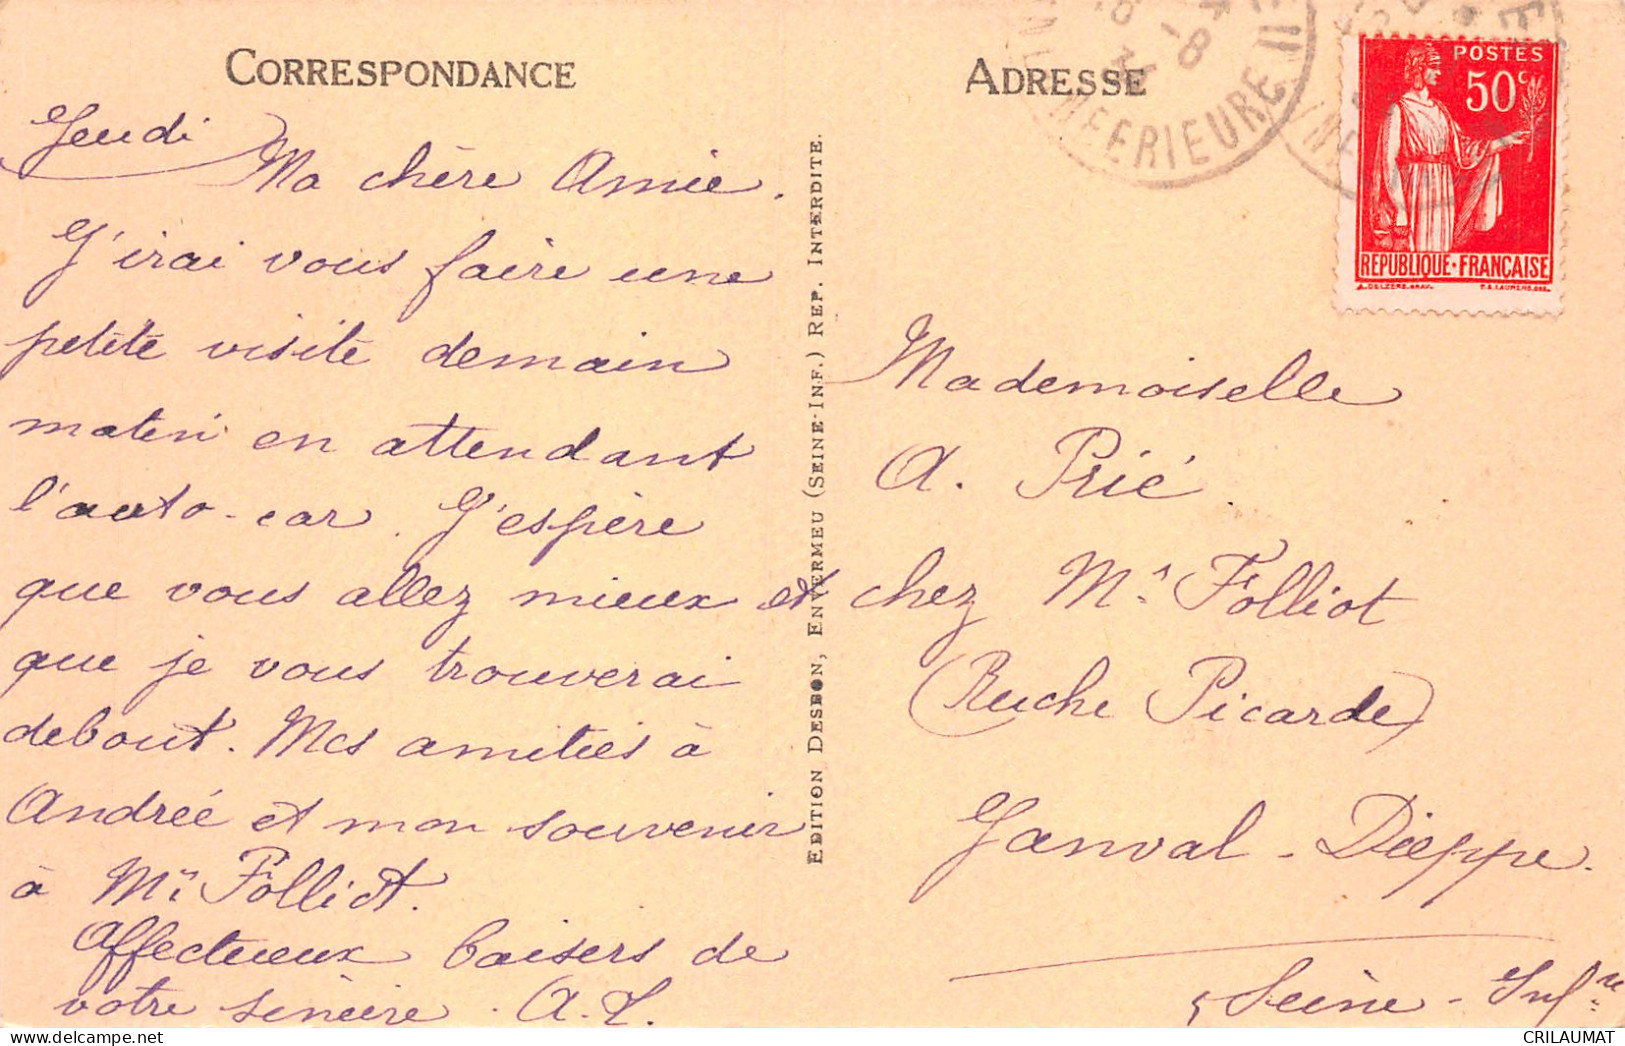 CORRESPONDANCE
Jeudi
Ma chère Amie.
J'irai vous faire une
petite visite demain
matin en attendant
l'auto-car. J'espère
que vous allez mieux et
que je vous trouverai
debout. Mes amitiés à
Andrée et mon souvenir
à Mr Folliot.
Affectueux baisers de
votre sincère. A.L.
EDITION DESBON, ENVERMEU (SEINE-INF.) REP. INTERDITE.
ADRESSE
INFERIEURE
POSTES
50c
REPUBLIQUE·FRANÇAISE
Mademoiselle
A. Prié.
chez Mr. Folliot
(Ruche Picarde)
Janval - Dieppe.
Seine-Infre
CRILAUMAT